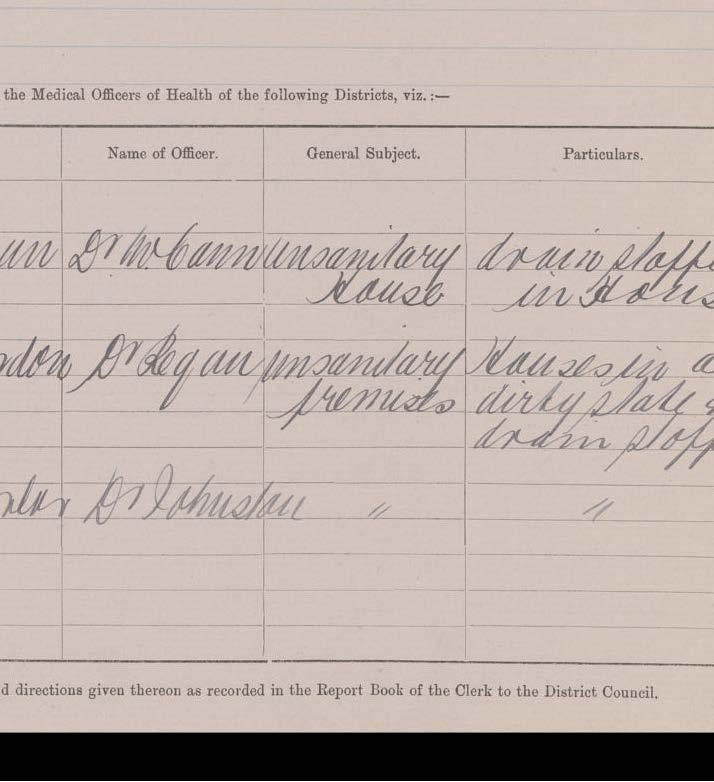 the Medical Officers of Health of the following Districts, viz.:—
Name of Officer. General Subject. Particulars.
Dr McCann unsanitary drain stoppe
House in Hous
Dr Regan unsanitary Houses in a
premises dirty state &
drain stopp
Dr Johnston " "
d directions given thereon as recorded in the Report Book of the Clerk to the District Council.